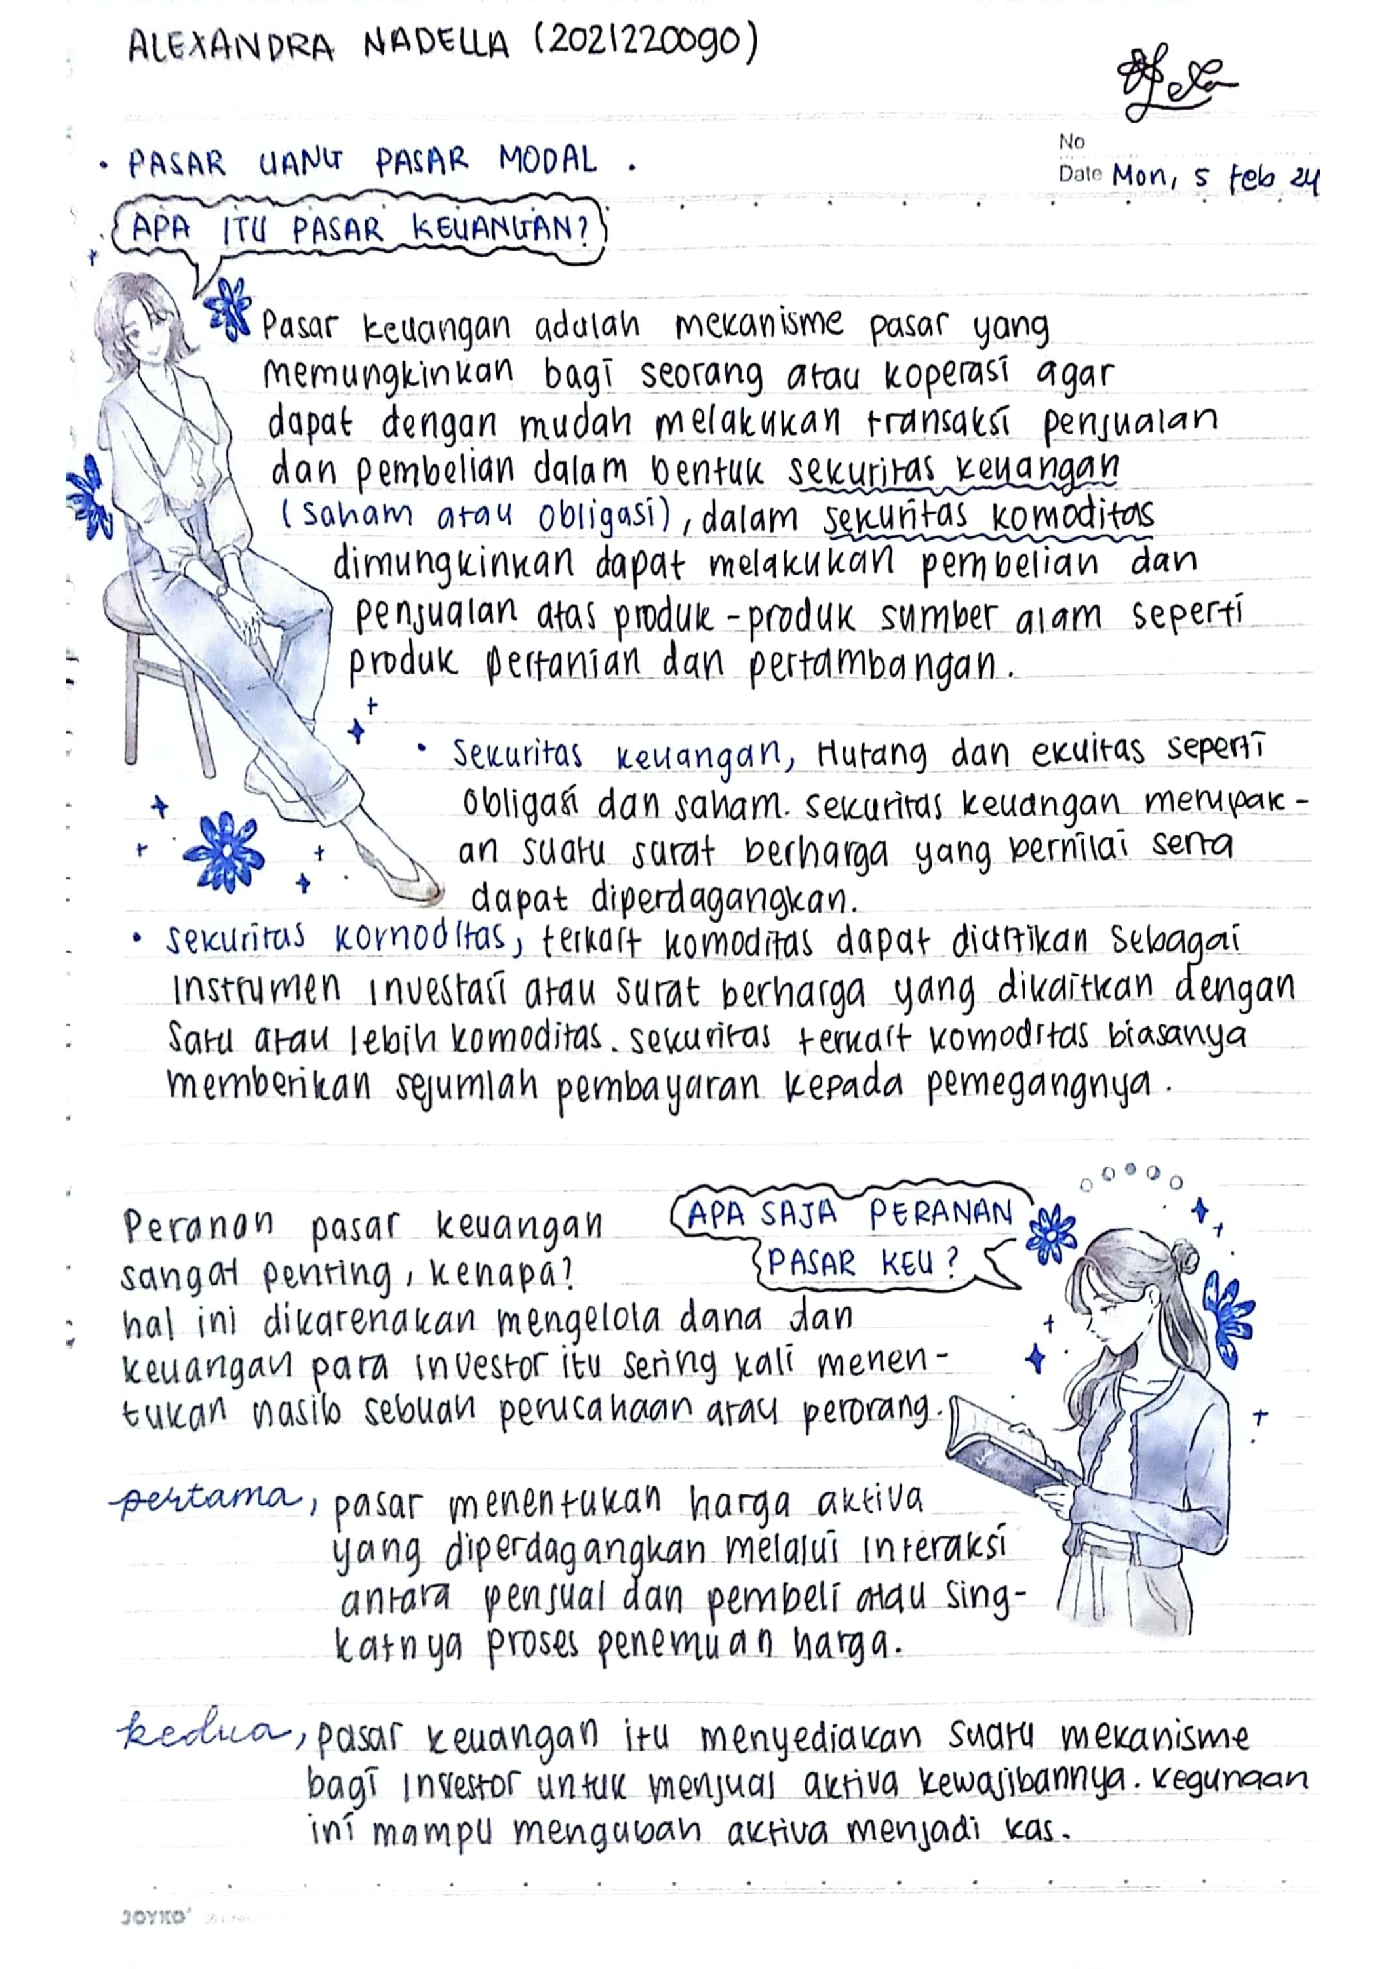 ALEXANDRA NADELLA (2021220090)
No
Date Mon, 5 Feb 24
• PASAR UANG PASAR MODAL .
APA ITU PASAR KEUANGAN?
Pasar keuangan adalah mekanisme pasar yang
memungkinkan bagi seorang atau koperasi agar
dapat dengan mudah melakukan transaksi penjualan
dan pembelian dalam bentuk sekuritas keuangan
(saham atau obligasi), dalam sekuritas komoditas
dimungkinkan dapat melakukan pembelian dan
penjualan atas produk-produk sumber alam seperti
produk pertanian dan pertambangan.
• Sekuritas keuangan, Hutang dan ekuitas seperti
obligasi dan saham. sekuritas keuangan merupak-
an suatu surat berharga yang bernilai serta
dapat diperdagangkan.
• sekuritas komoditas, terkait komoditas dapat diartikan sebagai
instrumen investasi atau surat berharga yang dikaitkan dengan
satu atau lebih komoditas. sekuritas terkait komoditas biasanya
memberikan sejumlah pembayaran kepada pemegangnya.
APA SAJA PERANAN
PASAR KEU?
Peranan pasar keuangan
sangat penting, kenapa?
hal ini dikarenakan mengelola dana dan
keuangan para investor itu sering kali menen-
tukan nasib sebuah perucahaan atau perorang.
pertama, pasar menentukan harga aktiva
yang diperdagangkan melalui interaksi
antara penjual dan pembeli atau sing-
katnya proses penemuan harga.
kedua, pasar keuangan itu menyediakan suatu mekanisme
bagi investor untuk menjual aktiva kewajibannya. kegunaan
ini mampu mengubah aktiva menjadi kas.
JOYKO